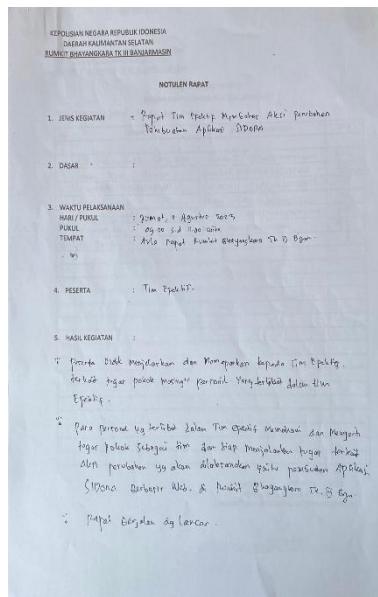 KEPOLISIAN NEGARA REPUBLIK IDONESIA
DAERAH KALIMANTAN SELATAN
RUMKIT BHAYANGKARA TK III BANJARMASIN
NOTULEN RAPAT
1. JENIS KEGIATAN : Rapat Tim Efektif Membahas Aksi Perubahan
Pembuatan Aplikasi SIDORA
2. DASAR :
3. WAKTU PELAKSANAAN
HARI / PUKUL : Jumat, Agustus 2023
PUKUL : 09.00 s.d 11.00
TEMPAT : Aula Rapat Rumkit Bhayangkara Tk. III Bjm.
4. PESERTA : Tim Efektif.
5. HASIL KEGIATAN :
Peserta menjelaskan dan memaparkan kepada Tim Efektif
terkait tugas pokok masing" personil yang terlibat dalam tim
Efektif.
Para personil yg terlibat dalam Tim Efektif memahami dan mengerti
tugas pokok sebagai tim dan siap menjalankan tugas terkait
aksi perubahan yg akan dilaksanakan yaitu pembuatan Aplikasi
SIDORA berbasis Web. di Rumkit Bhayangkara Tk. III Bjm
Rapat berjalan dg lancar.